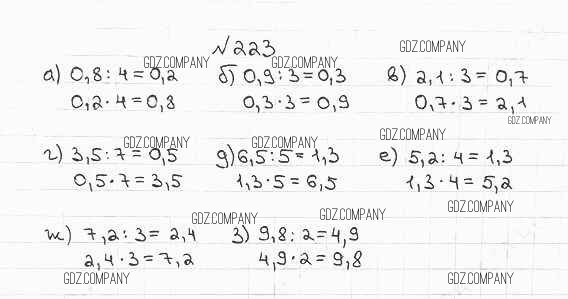 №223
GDZ.COMPANY
GDZ.COMPANY GDZ.COMPANY
а) 0,8 : 4 = 0,2 б) 0,9 : 3 = 0,3 в) 2,1 : 3 = 0,7
0,2 · 4 = 0,8 0,3 · 3 = 0,9 0,7 · 3 = 2,1
GDZ.COMPANY
GDZ.COMPANY GDZ.COMPANY GDZ.COMPANY
г) 3,5 : 7 = 0,5 д) 6,5 : 5 = 1,3 е) 5,2 : 4 = 1,3
0,5 · 7 = 3,5 1,3 · 5 = 6,5 1,3 · 4 = 5,2
GDZ.COMPANY GDZ.COMPANY GDZ.COMPANY
ж) 7,2 : 3 = 2,4 з) 9,8 : 2 = 4,9
2,4 · 3 = 7,2 4,9 · 2 = 9,8
GDZ.COMPANY GDZ.COMPANY